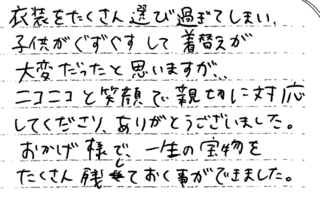 衣装をたくさん選び過ぎてしまい、
子供がぐずぐずして着替えが
大変だったと思いますが、、
ニコニコと笑顔で親切に対応
してくださり、ありがとうございました。
おかげ様で、一生の宝物を
たくさん残しておく事ができました。